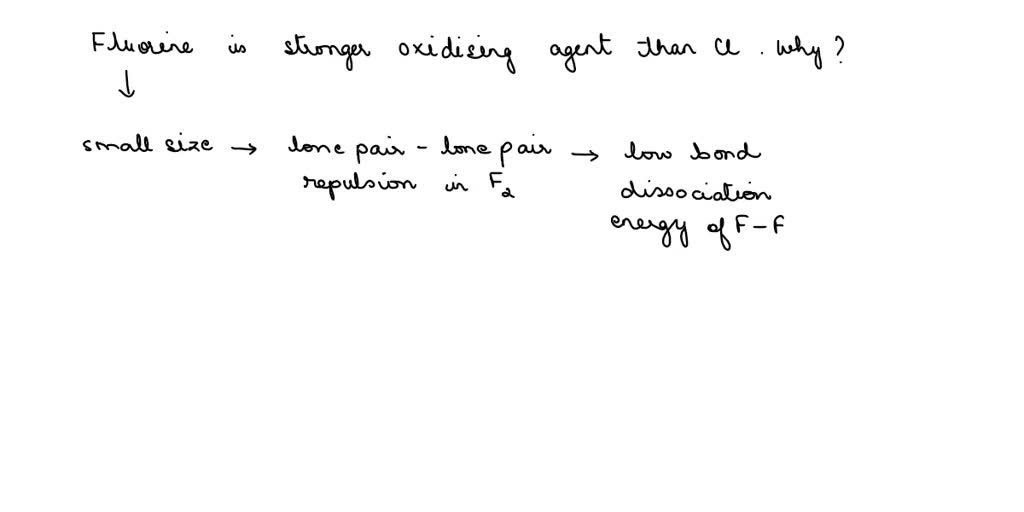 Fluorine is stronger oxidising agent than Cl. why?
↓
small size → lone pair - lone pair → low bond
repulsion in F₂ dissociation
energy of F-F